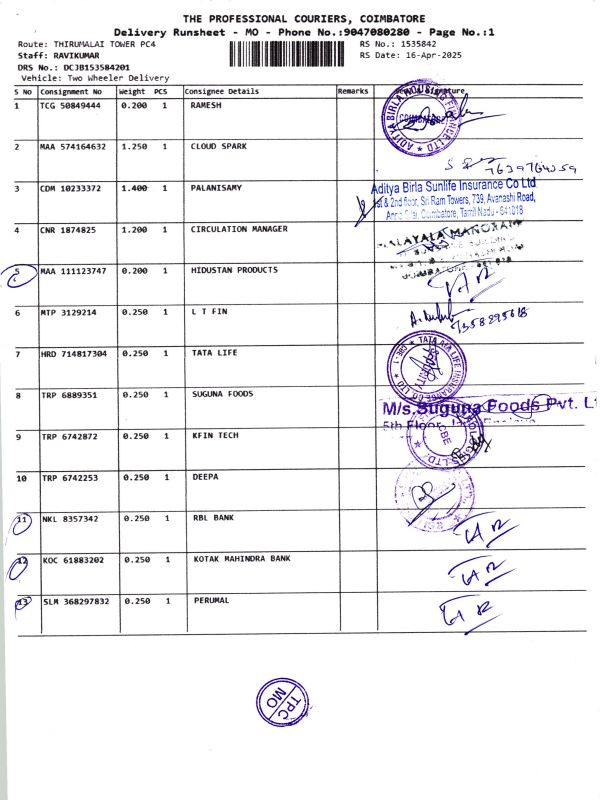 THE PROFESSIONAL COURIERS, COIMBATORE
Delivery Runsheet - MO - Phone No.:9047080280 - Page No.:1
Route: THIRUMALAI TOWER PC4 RS No.: 1535842
Staff: RAVIKUMAR RS Date: 16-Apr-2025
DRS No.: DC3B153584201
Vehicle: Two Wheeler Delivery
S No Consignment No Weight PCS Consignee Details Remarks Signature
1 TCG 50849444 0.200 1 RAMESH
ADITYA BIRLA HOUSING FINANCE LTD
2 MAA 574164632 1.250 1 CLOUD SPARK
7639764259
3 CDM 10233372 1.400 1 PALANISAMY
Aditya Birla Sunlife Insurance Co Ltd
1st & 2nd floor, Sri Ram Towers, 739, Avanashi Road,
Coimbatore, Tamil Nadu - 641018
4 CNR 1874825 1.200 1 CIRCULATION MANAGER
MALAYALA MANORAMA
5 MAA 111123747 0.200 1 HIDUSTAN PRODUCTS
6 MTP 3129214 0.250 1 L T FIN
7358895618
7 HRD 714817304 0.250 1 TATA LIFE
TATA AIA LIFE INSURANCE CO LTD CBE-1
8 TRP 6889351 0.250 1 SUGUNA FOODS
M/s.Suguna Foods Pvt. Lt
5th Floor,
9 TRP 6742872 0.250 1 KFIN TECH
CBE
10 TRP 6742253 0.250 1 DEEPA
11 NKL 8357342 0.250 1 RBL BANK
12 KOC 61883202 0.250 1 KOTAK MAHINDRA BANK
13 SLM 368297832 0.250 1 PERUMAL
TPC
MO